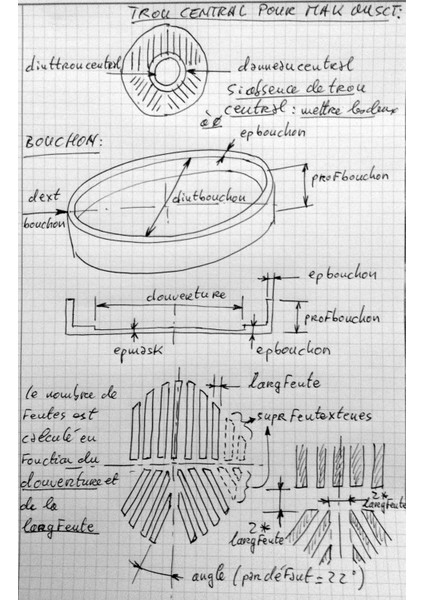 TROU CENTRAL POUR MAK OU SCT:
dinttroucentral
danneaucentral
Si absence de trou
central: mettre les deux
à ø
BOUCHON:
epbouchon
profbouchon
dext
bouchon
dintbouchon
epbouchon
douverture
profbouchon
epmask
epbouchon
le nombre de
Fentes est
calculé en
Fonction du
douverture et
de la
largFente
largFente
supprFentextenes
2*
largFente
2*
largFente
angle (par défaut = 22°)